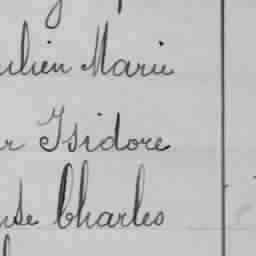 ulien Marie
r Isidore
use Charles